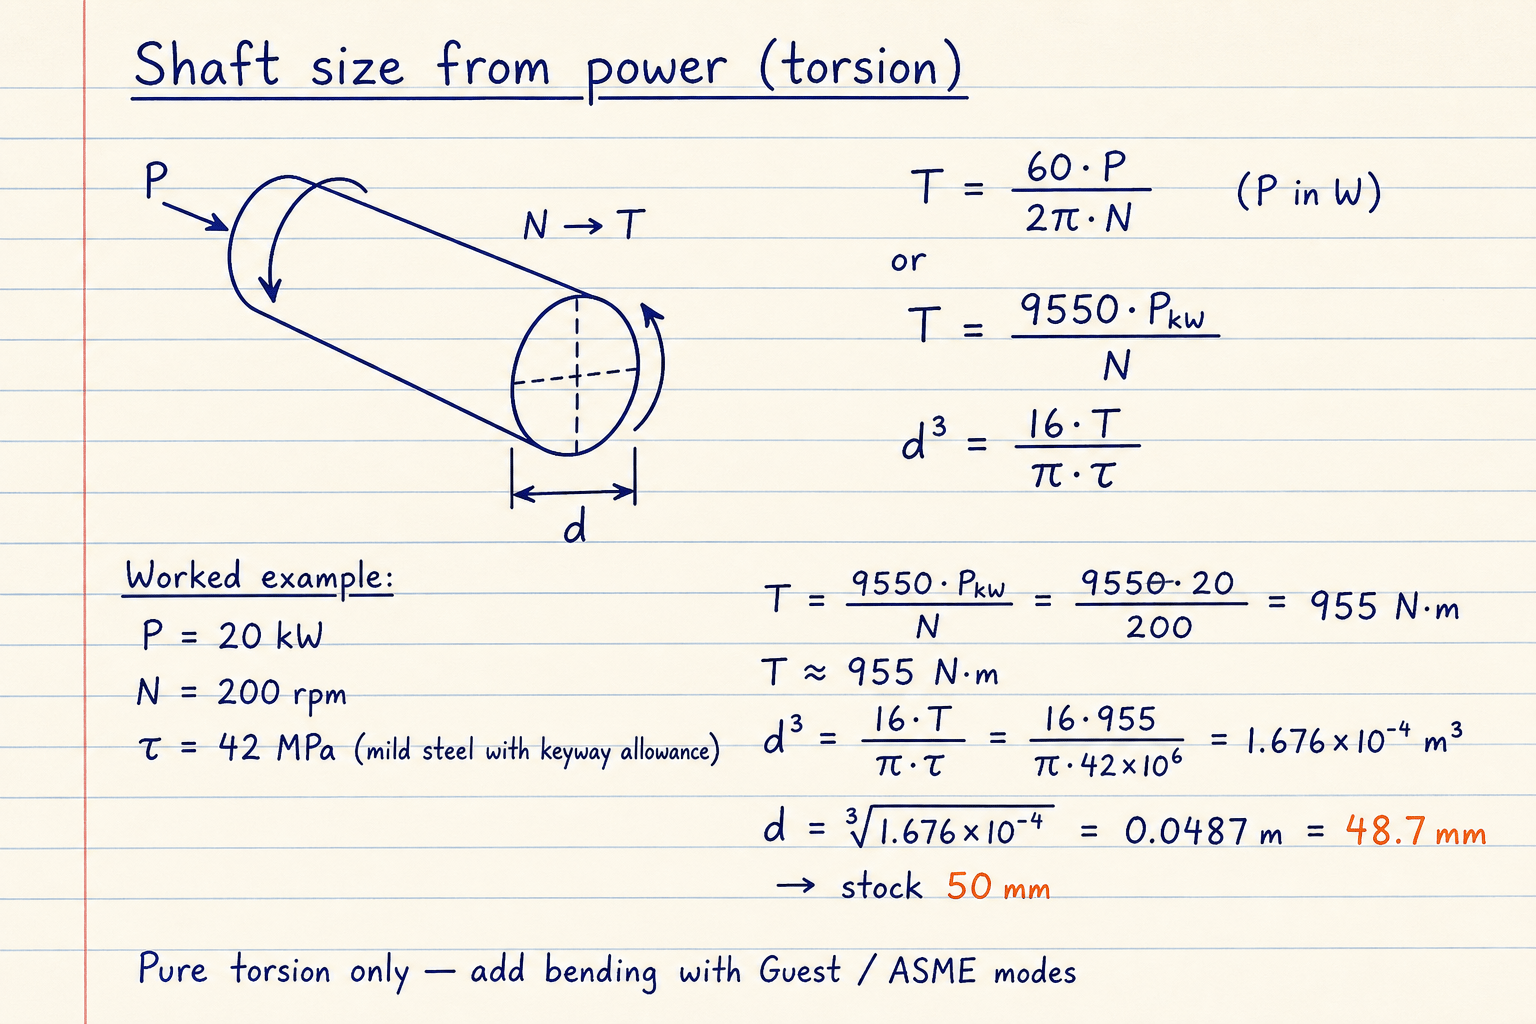 Shaft size from power (torsion)
P
N → T
d
T = 60 · P / 2π · N (P in W)
or
T = 9550 · Pkw / N
d³ = 16 · T / π · τ
Worked example:
P = 20 kW
N = 200 rpm
τ = 42 MPa (mild steel with keyway allowance)
T = 9550 · Pkw / N = 9550 · 20 / 200 = 955 N·m
T ≈ 955 N·m
d³ = 16 · T / π · τ = 16 · 955 / π · 42 × 10⁶ = 1.676 × 10⁻⁴ m³
d = ³√1.676 × 10⁻⁴ = 0.0487 m = 48.7 mm
→ stock 50 mm
Pure torsion only — add bending with Guest / ASME modes